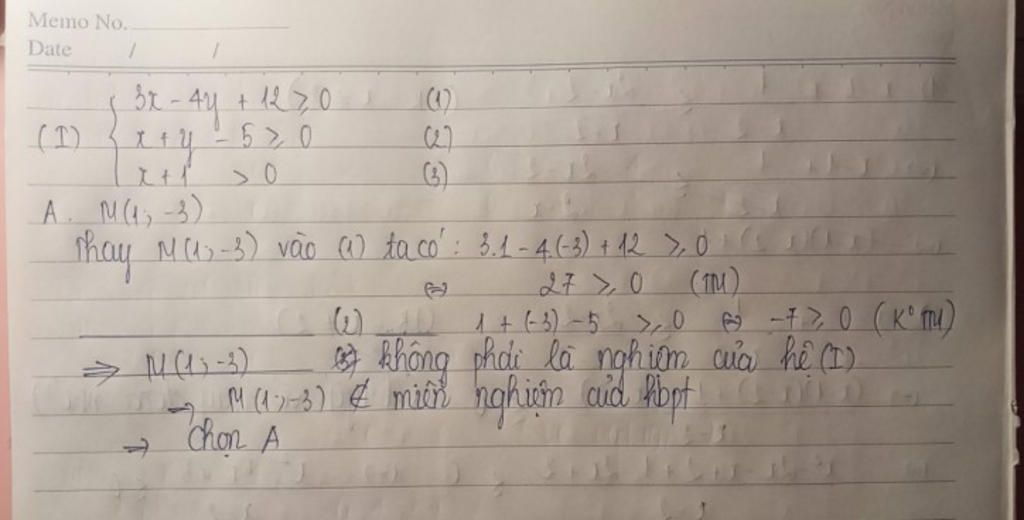 Memo No.
Date / /
3x - 4y + 12 ≥ 0 (1)
(I) { x + y - 5 ≥ 0 (2)
x + 1 > 0 (3)
A. M(1; -3)
Thay M(1; -3) vào (1) ta có: 3.1 - 4.(-3) + 12 ≥ 0
⇔ 27 ≥ 0 (TM)
(2) 1 + (-3) - 5 ≥ 0 ⇔ -7 ≥ 0 (K° TM)
⇒ M(1; -3) không phải là nghiệm của hệ (I)
→ M(1; -3) ∉ miền nghiệm của hbpt
→ Chọn A